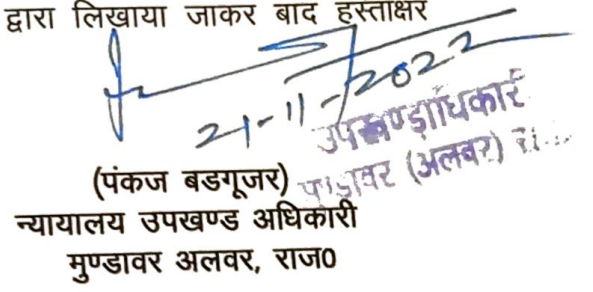 द्वारा लिखाया जाकर बाद हस्ताक्षर
21-11-2022
उपखण्ड़ाधिकारी
(अलवर)
(पंकज बडगूजर)
न्यायालय उपखण्ड अधिकारी
मुण्डावर अलवर, राज0